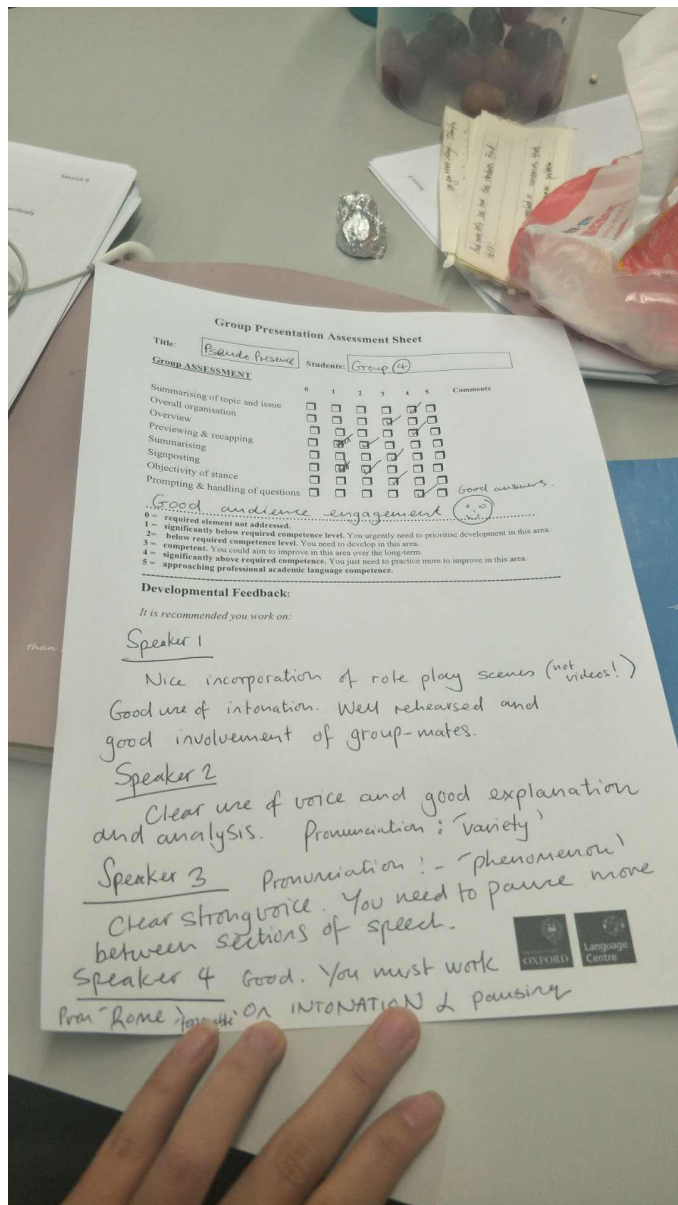 Session 9
Group Presentation Assessment Sheet
Title: Pseudo Presence Students: Group 4
Group ASSESSMENT
0 1 2 3 4 5 Comments
Summarising of topic and issue
Overall organisation
Overview
Previewing & recapping
Summarising
Signposting
Objectivity of stance
Prompting & handling of questions Good answers.
Good audience engagement
0 = required element not addressed.
1 = significantly below required competence level. You urgently need to prioritise development in this area.
2= below required competence level. You need to develop in this area.
3 = competent. You could aim to improve in this area over the long-term.
4 = significantly above required competence. You just need to practice more to improve in this area.
5 = approaching professional academic language competence.
Developmental Feedback:
It is recommended you work on:
than
Speaker 1
Nice incorporation of role play scenes (not videos!)
Good use of intonation. Well rehearsed and
good involvement of group-mates.
Speaker 2
Clear use of voice and good explanation
and analysis. Pronunciation: 'variety'
Speaker 3 Pronunciation: - 'phenomenon'
Clear strong voice. You need to pause more
between sections of speech.
OXFORD
Language
Centre
Speaker 4 Good. You must work
Pron 'Rome' ON INTONATION & pausing